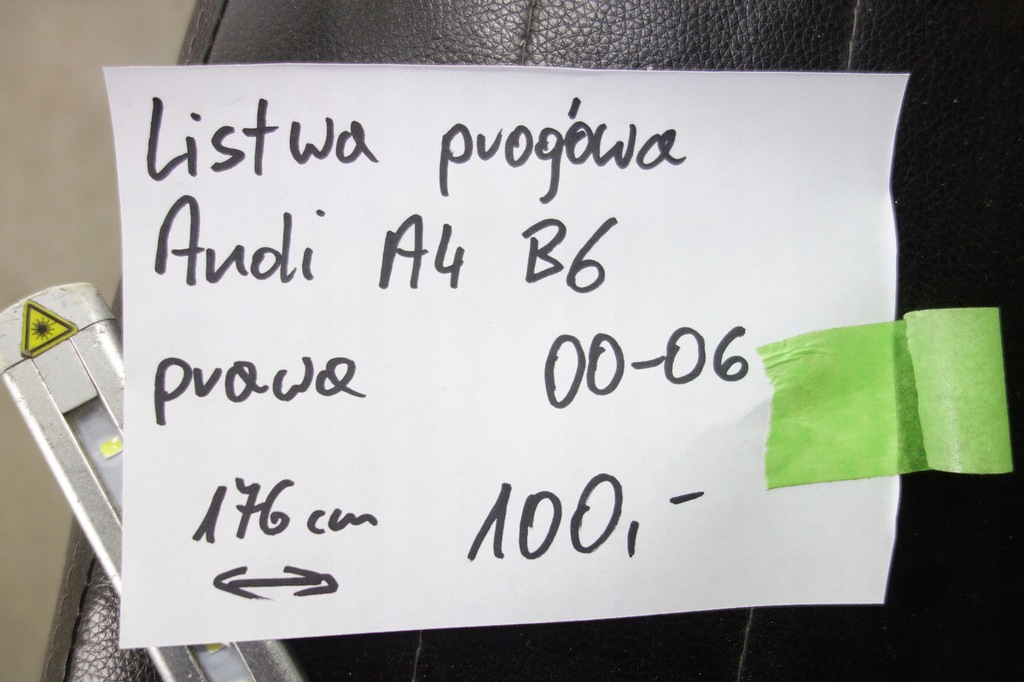 Listwa progówa
Audi A4 B6
prawa 00-06
176 cm 100,-